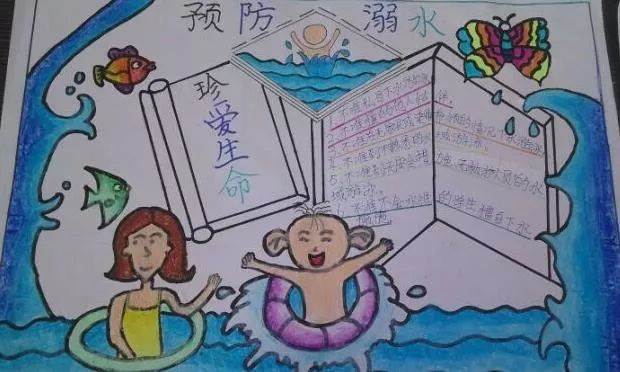 预防溺水
珍爱生命
1. 不准私自下水游泳。
2. 不准擅自与他人结伴
3. 不准在无家长或老师带领的情况下水游泳。
4. 不准到不熟悉的水域游泳。
5. 不准到无安全设施、无救护人员的水
域游泳。
6. 不准不会水性的学生擅自下水
施救。